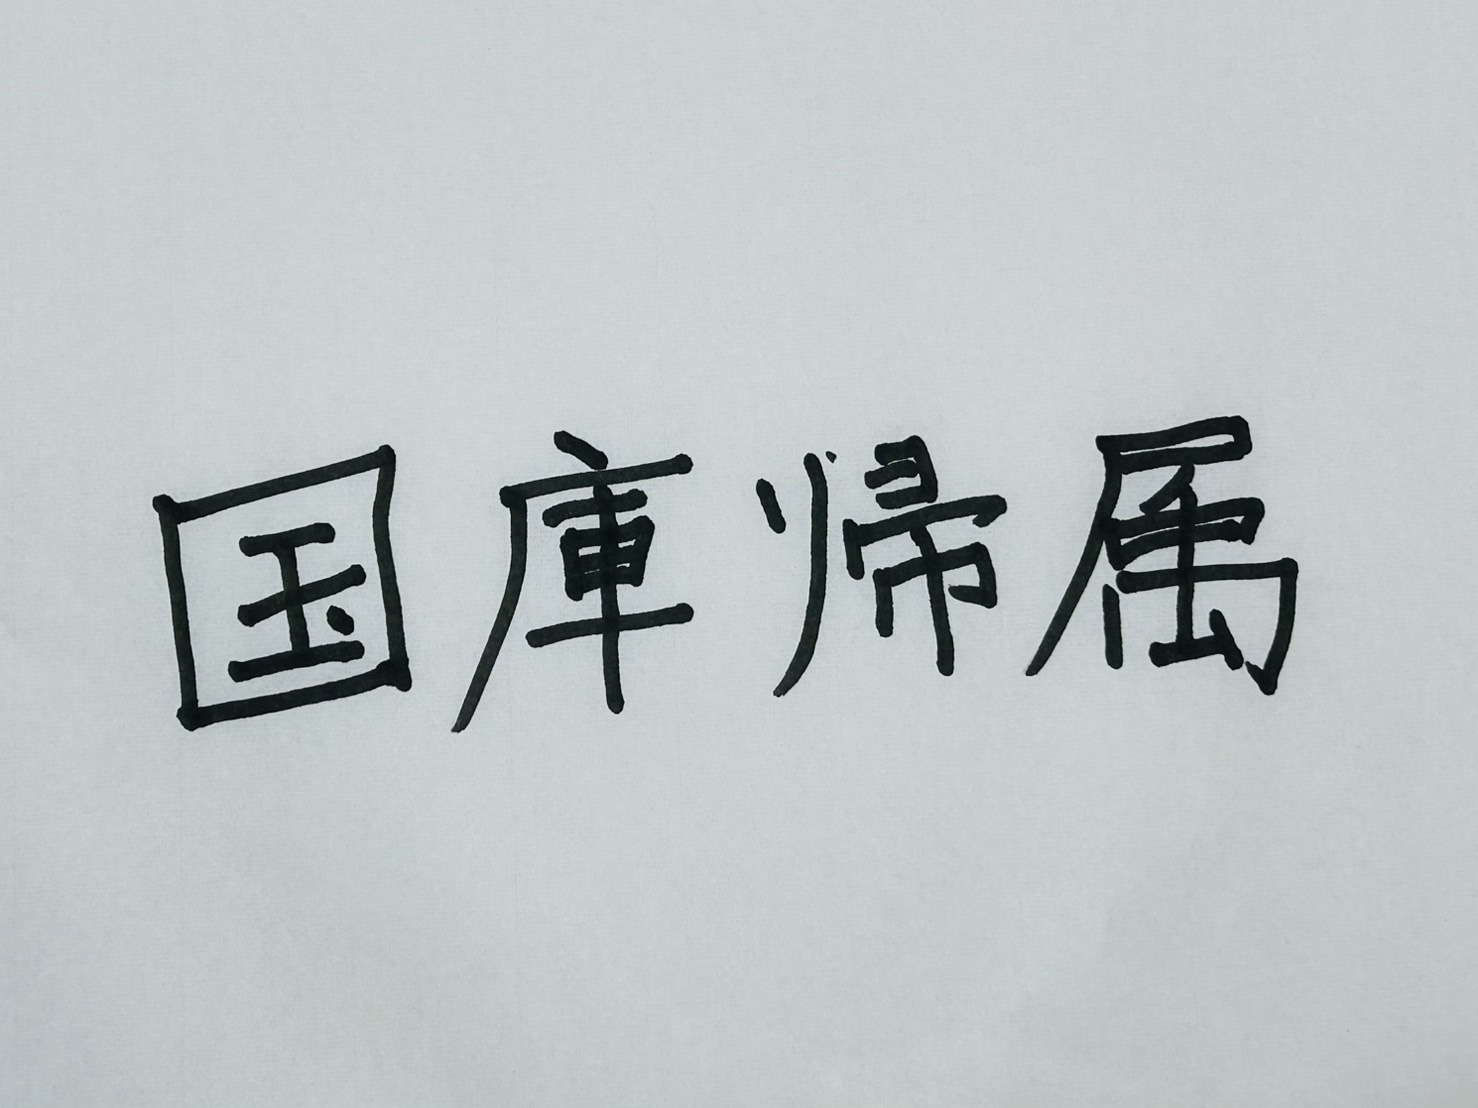 国庫帰属